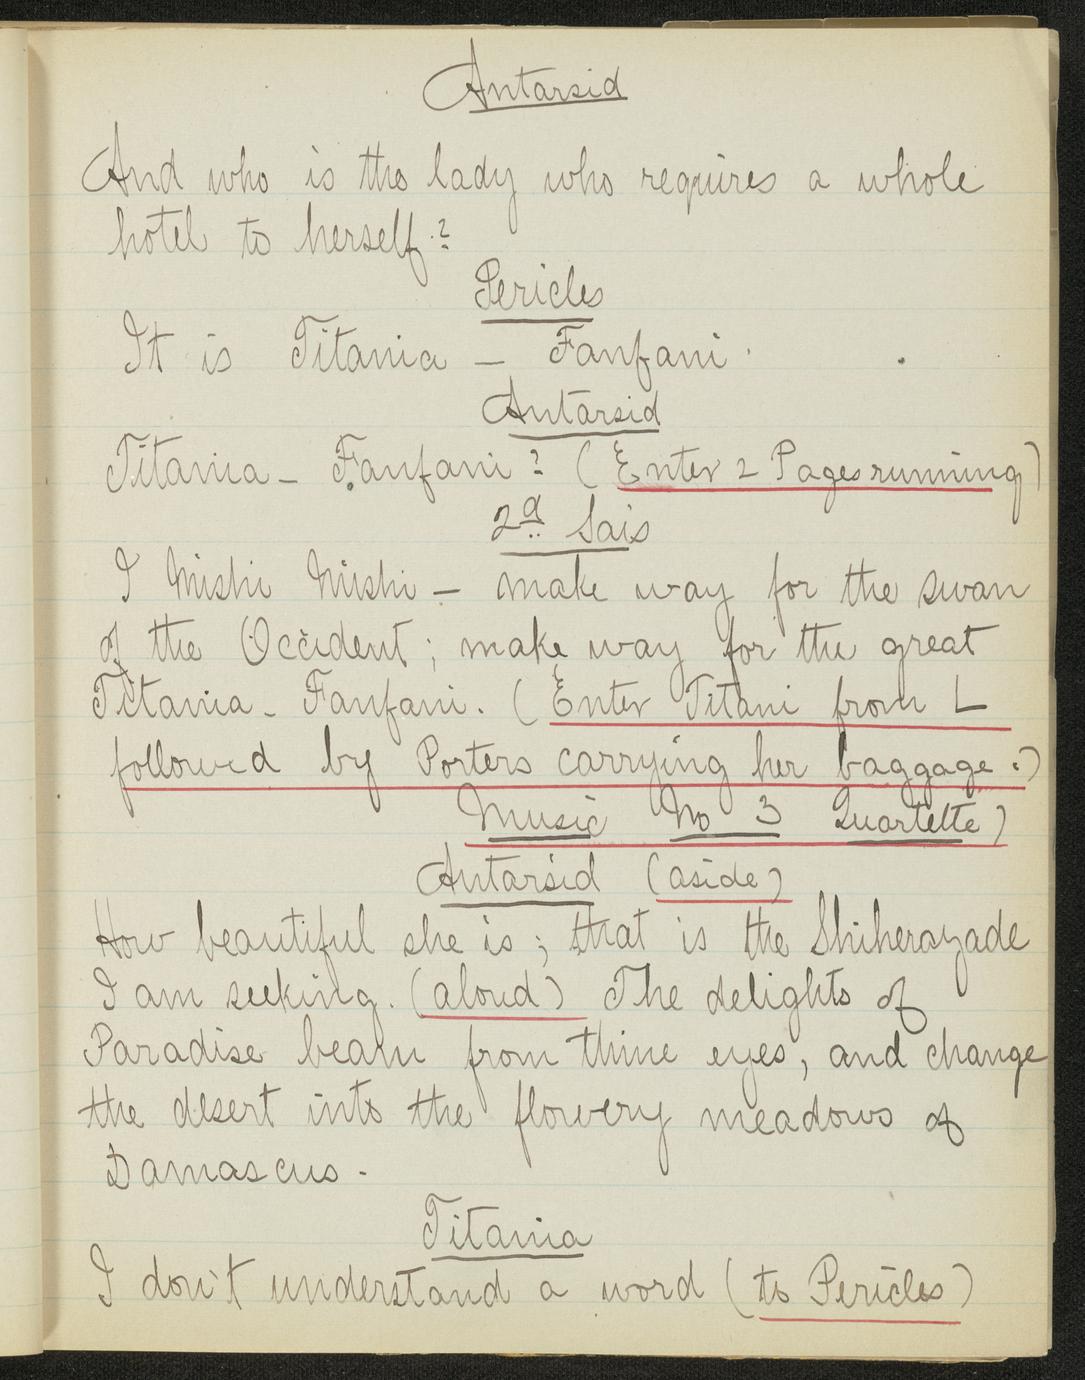 Antarsid
And who is the lady who requires a whole
hotel to herself?
Pericles
It is Titania – Fanfani.
Antarsid
Titania – Fanfani? (Enter 2 Pages running)
2d Sais
I Mishi Mishi – make way for the swan
of the Occident; make way for the great
Titania – Fanfani. (Enter Titani from L
followed by Porters carrying her baggage.)
Music No 3 Quartette)
Antarsid (aside)
How beautiful she is; that is the Shiherazade
I am seeking. (aloud) The delights of
Paradise beam from thine eyes, and change
the desert into the flowery meadows of
Damascus.
Titania
I don't understand a word (to Pericles)